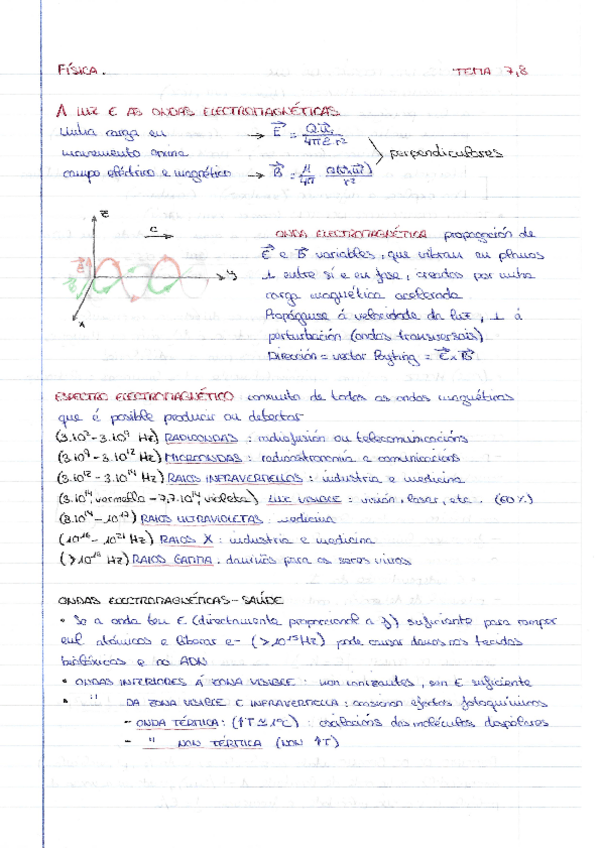 FÍSICA.
TEMA 7,8
A LUZ E AS ONDAS ELECTROMAGNÉTICAS
Unha carga en → E⃗ = Q·u⃗r / 4πε r²
movemento
campo eléctrico e magnético → B⃗ = μ/4π · Q(v⃗ x u⃗r) / r²
perpendiculares
z
c
E⃗
B⃗
y
x
ONDA ELECTROMAGNÉTICA: propagación de
E⃗ e B⃗ variables, que vibran en planos
⊥ entre sí e en fase, creados por unha
carga magnética acelerada
Propáganse á velocidade da luz, ⊥ á
perturbación (ondas transversais)
Dirección = vector Poyting = E⃗ x B⃗
ESPECTRO ELECTROMAGNÉTICO: conxunto de todas as ondas magnéticas
que é posible producir ou detectar
(3·10² - 3·10⁹ Hz) RADIOONDAS: radiofusión ou telecomunicacións
(3·10⁹ - 3·10¹² Hz) MICROONDAS: radioastronomía e comunicacións
(3·10¹² - 3·10¹⁴ Hz) RAIOS INFRAVERMELLOS: industria e medicina
(3·10¹⁴, vermella - 7,7·10¹⁴, violeta) LUZ VISIBLE: visión, laser, etc. (60%)
(8·10¹⁴ - 10¹⁷) RAIOS ULTRAVIOLETAS: medicina
(10¹⁶ - 10²¹ Hz) RAIOS X: industria e medicina
(>10¹⁹ Hz) RAIOS GAMMA: daniños para os seres vivos
ONDAS ELECTROMAGNÉTICAS - SAÚDE
• Se a onda ten E (directamente proporcional a f) suficiente para romper
enl atómicos e liberar e- (>10¹⁵Hz) pode causar danos nos tecidos
biolóxicos e no ADN
• ONDAS INTERIORES Á ZONA VISIBLE: non ionizantes, sen E suficiente
• " DA ZONA VISIBLE E INFRAVERMELLA: ocasionan efectos fotoquímicos
- ONDA TÉRMICA: (↑T ≃ 1ºC): oscilacións das moléculas dipolares
- " NON TÉRMICA (NON ↑T)